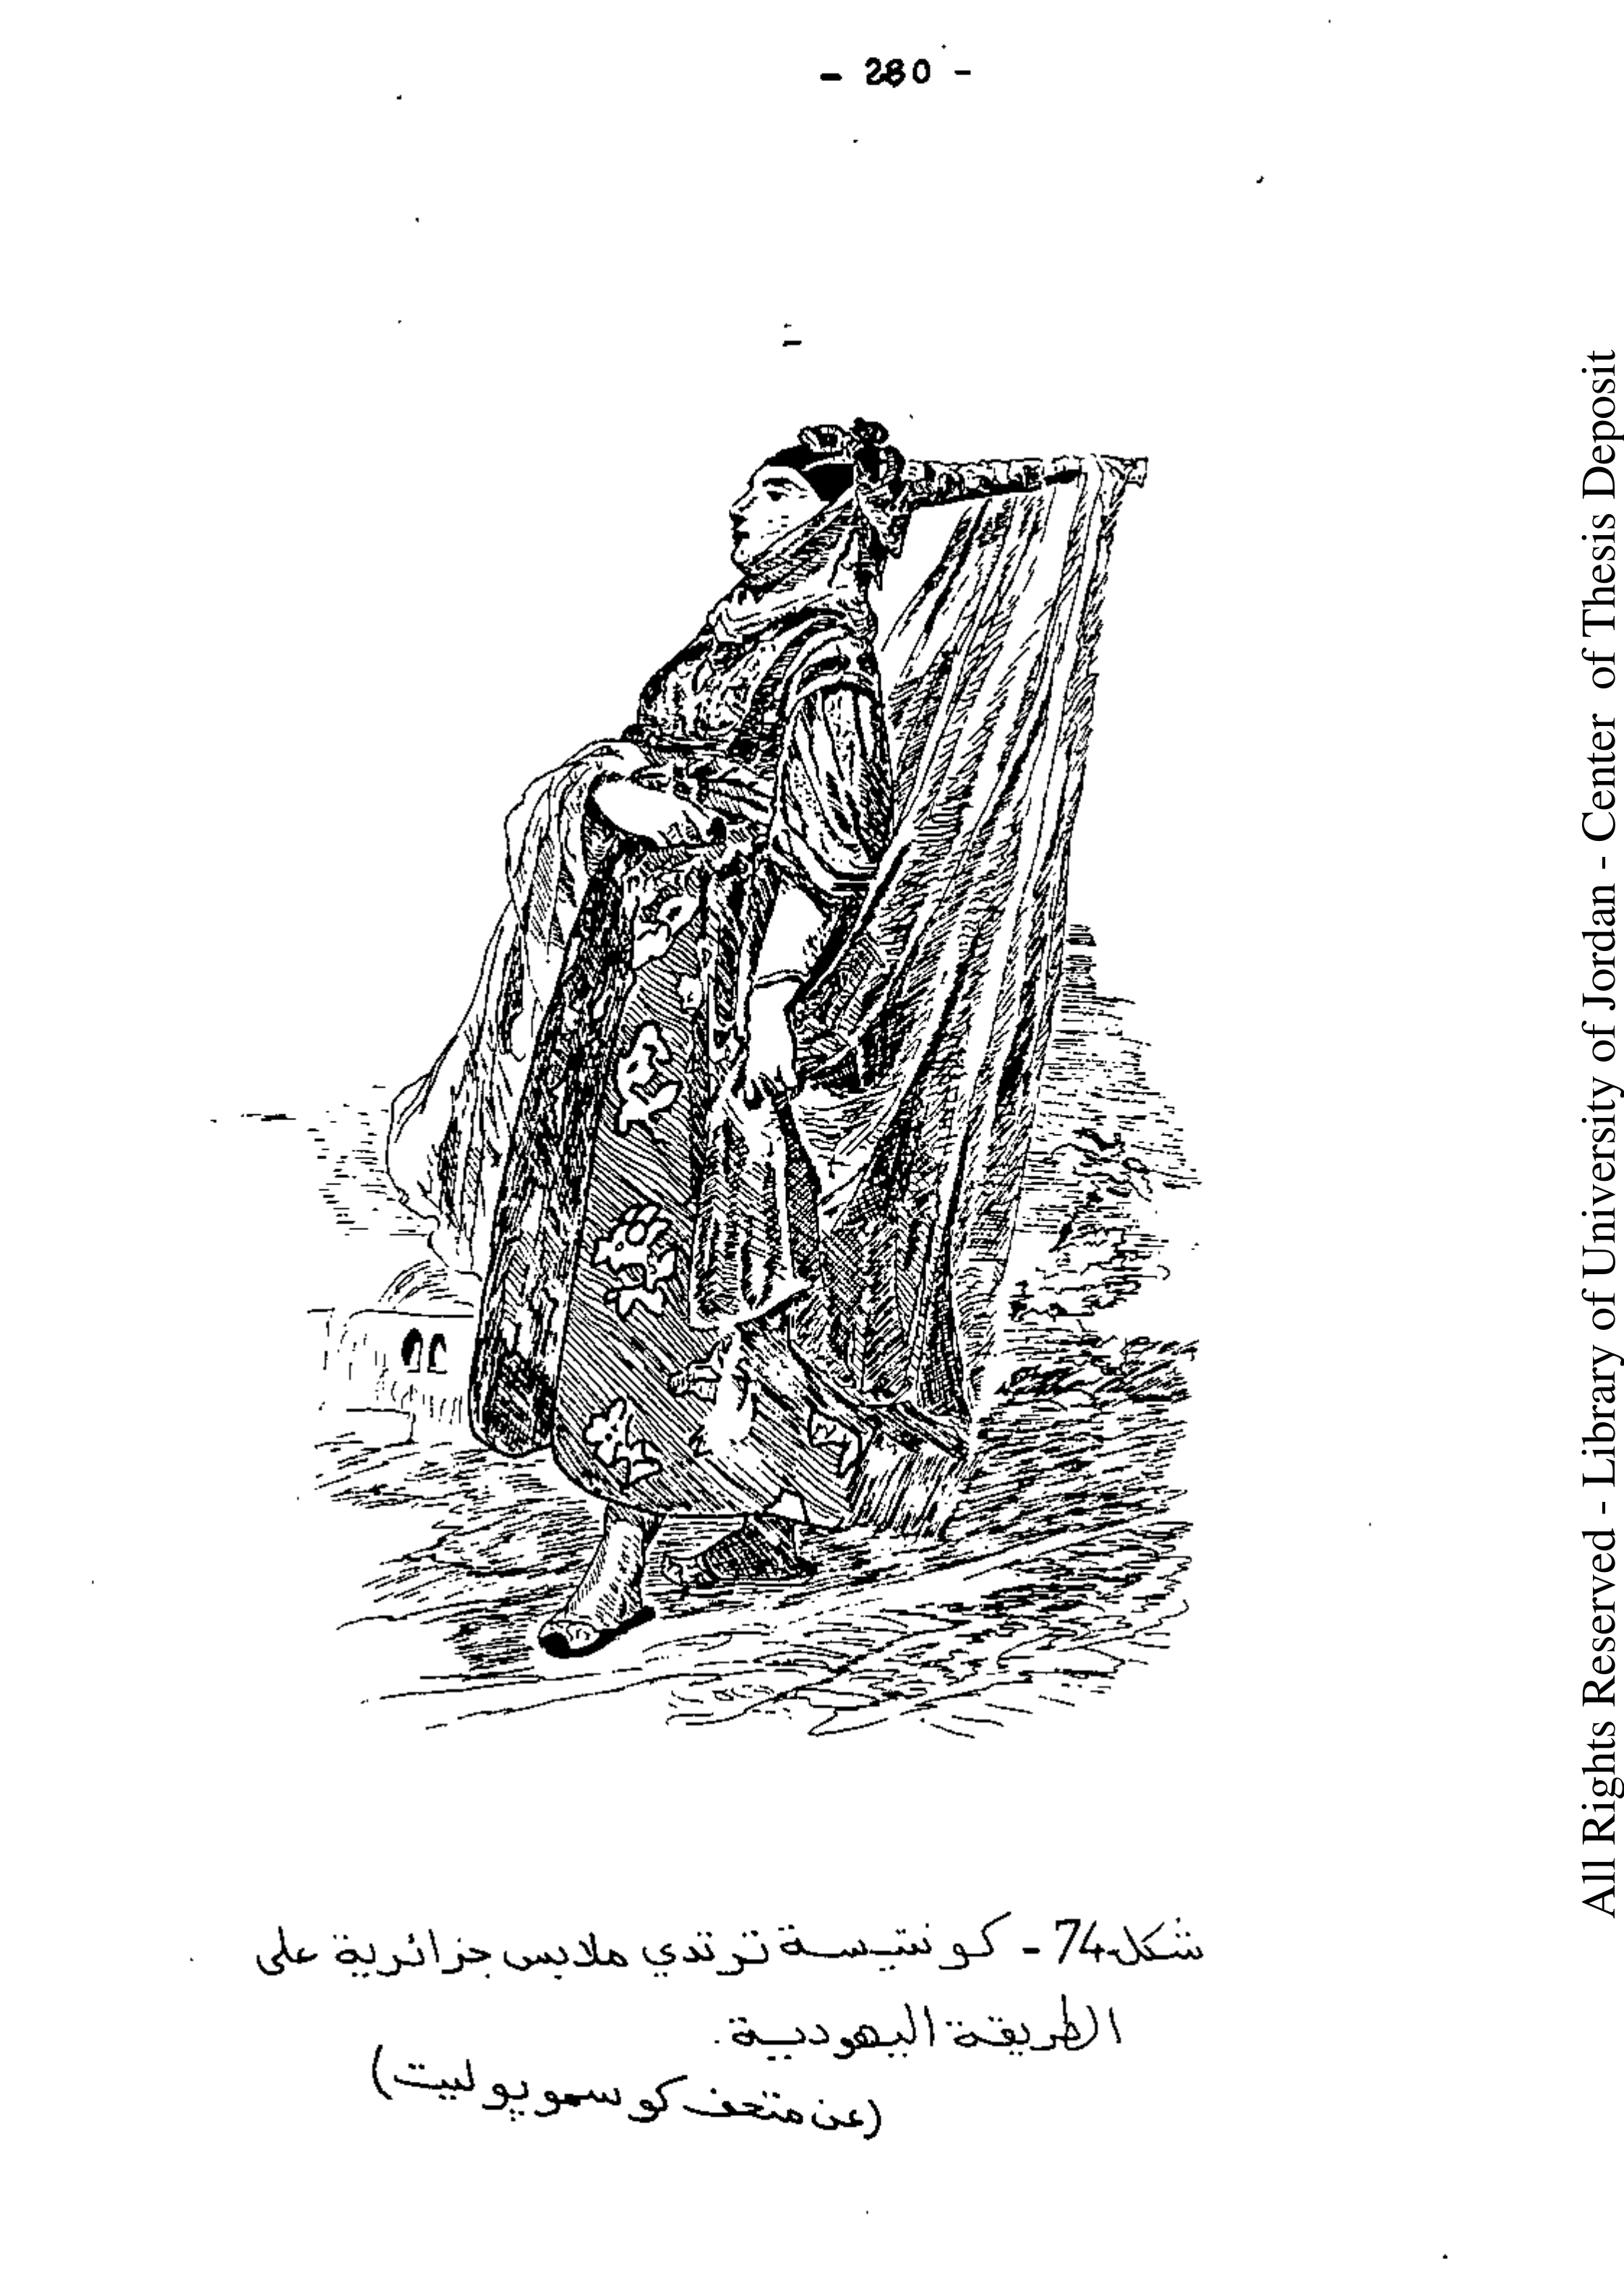 - 280 -
شكل 74 - كونتيسة ترتدي ملابس جزائرية على
الطريقة اليهودية.
(عن متحف كوسموبوليت)
All Rights Reserved - Library of University of Jordan - Center of Thesis Deposit